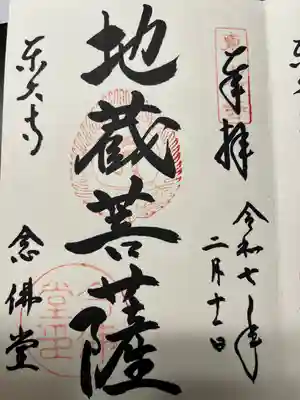 奉拝
令和七年
二月十一日
地蔵菩薩
東大寺
念佛堂